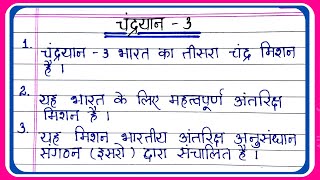 चंद्रयान - 3
1. चंद्रयान - 3 भारत का तीसरा चंद्र मिशन
है ।
2. यह भारत के लिए महत्वपूर्ण अंतरिक्ष
मिशन है ।
3. यह मिशन भारतीय अंतरिक्ष अनुसंधान
संगठन (इसरो) द्वारा संचालित है ।